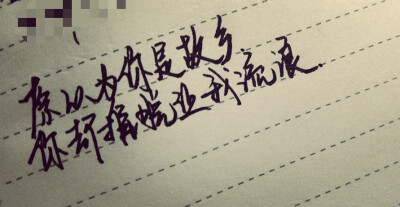 原以为你是故乡
你却让我流浪.